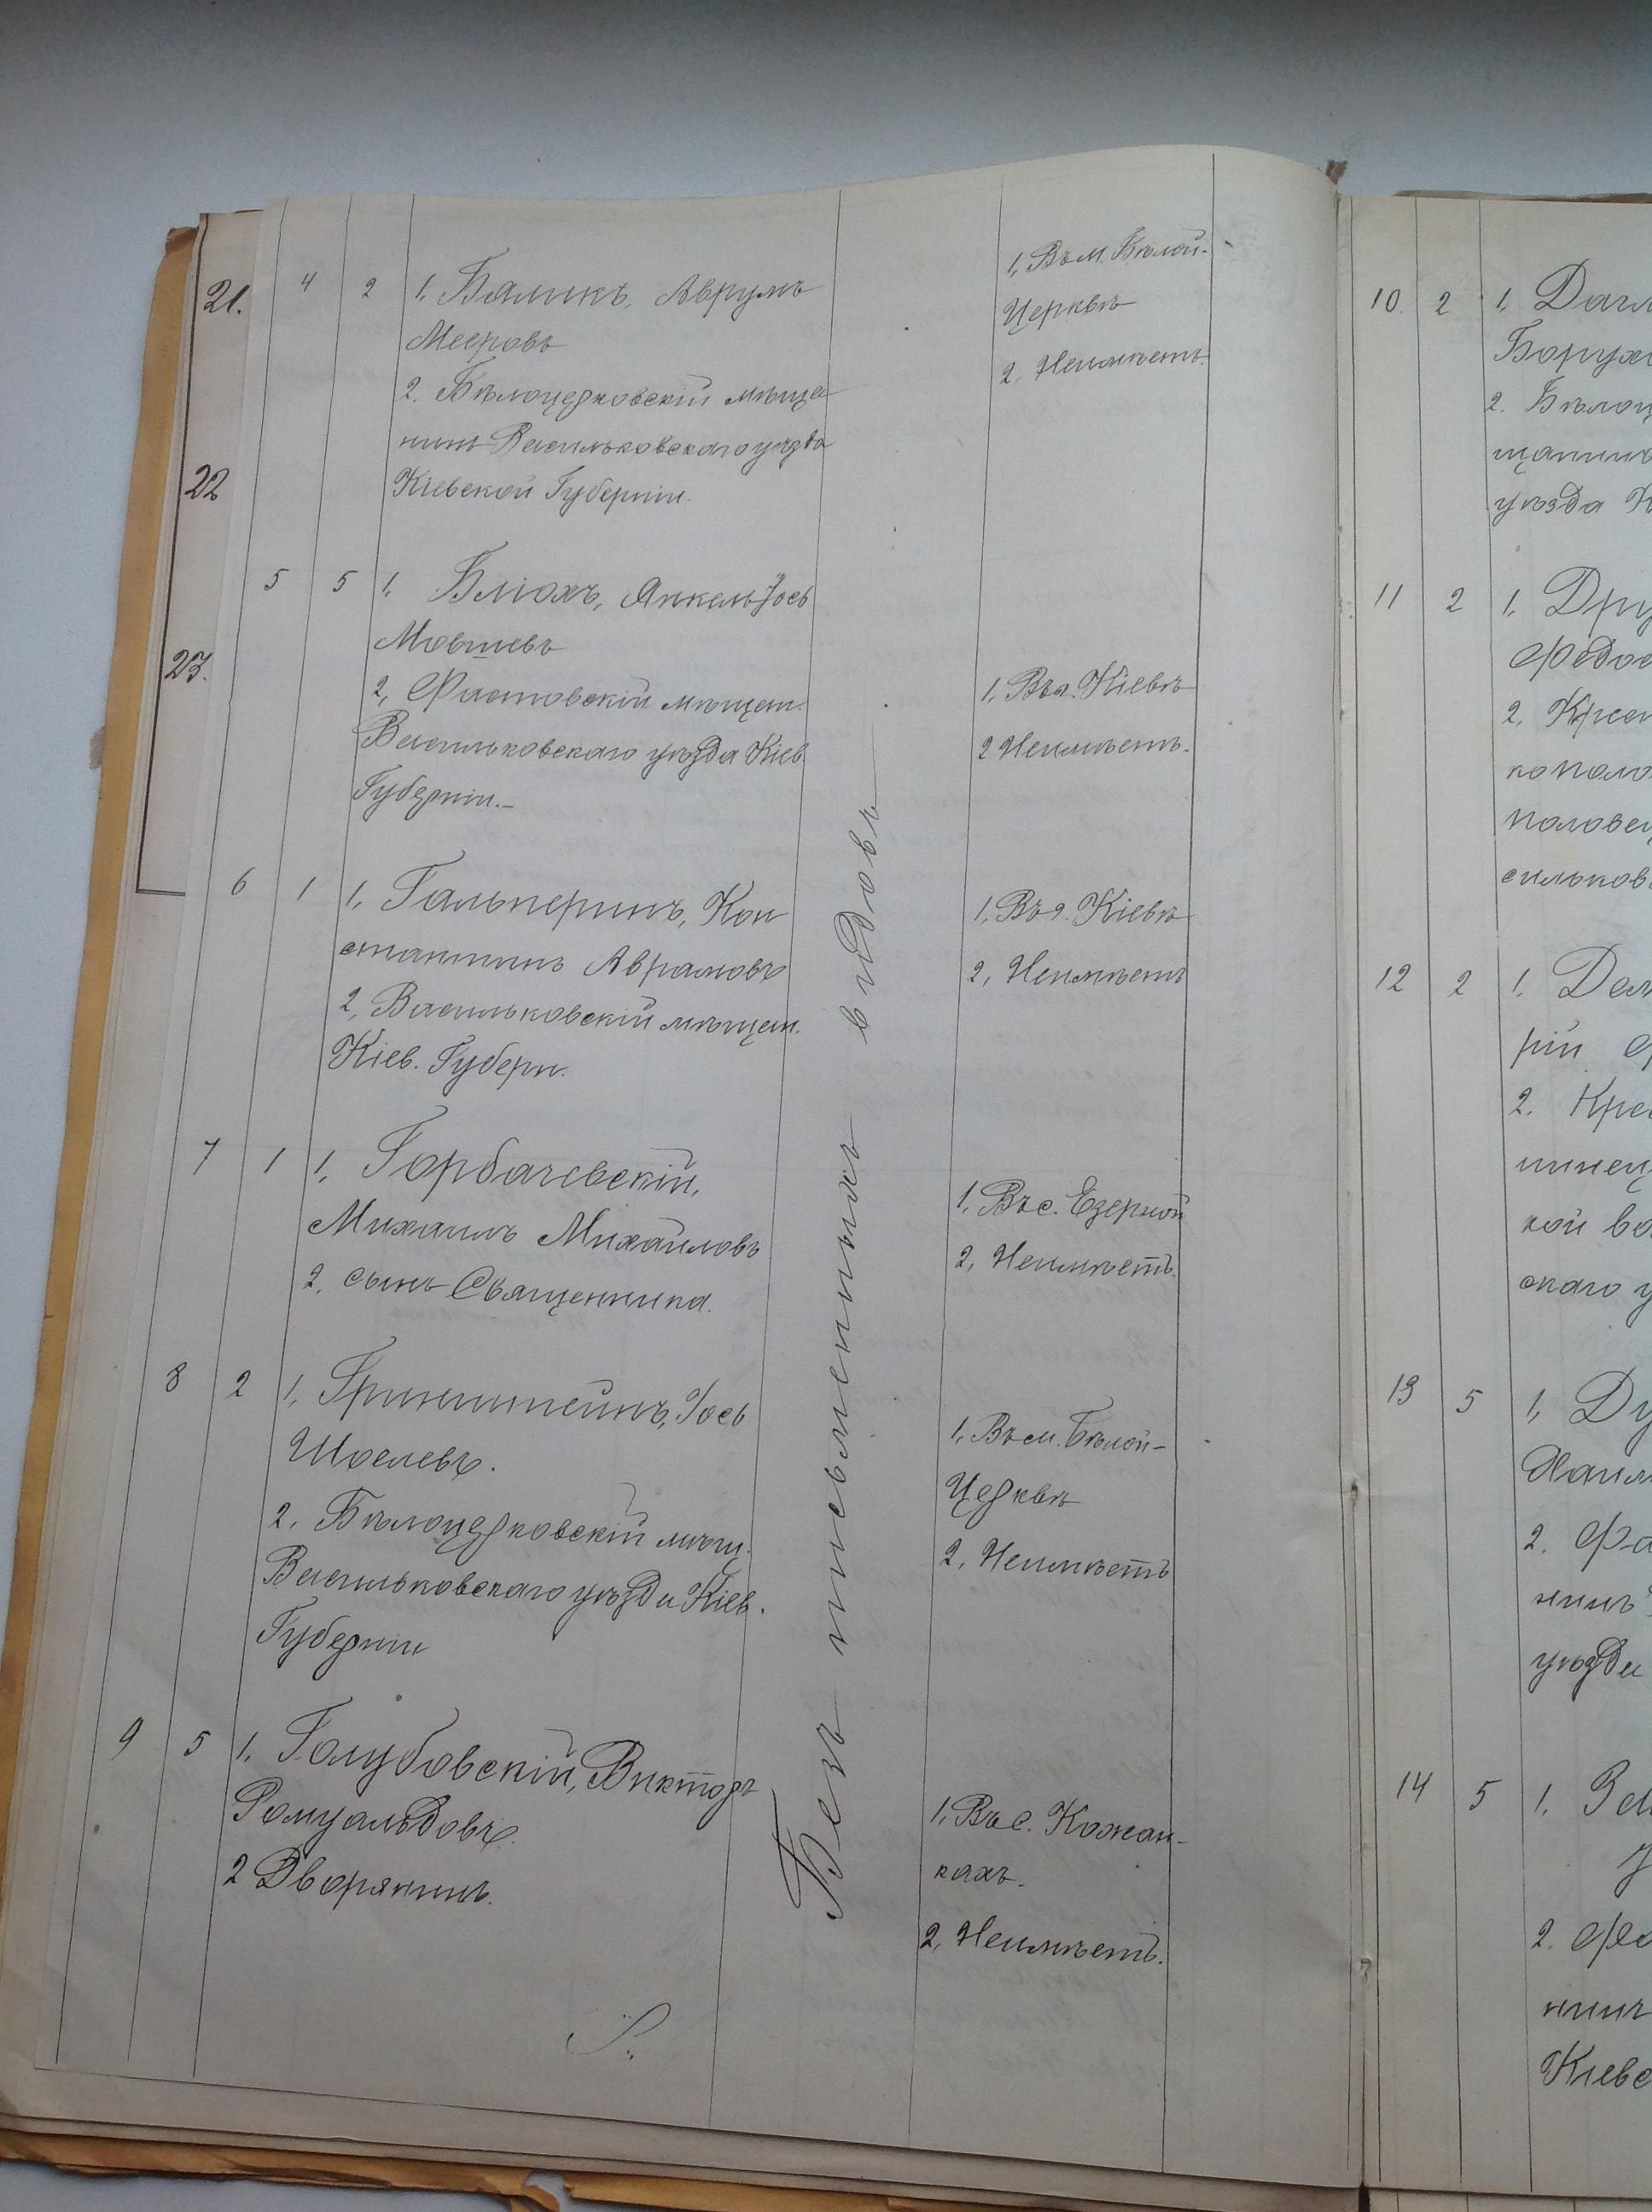 21.
22
23.
4 2 1, Бяликъ, Аврумъ
Мееровъ
2. Бѣлоцерковскій мѣща
нинъ Васильковскаго уѣзда
Кіевской Губерніи.
1, Въ м. Бѣлой-
Церквѣ
2, Неимѣетъ.
5 5 1, Блюхъ, Янкель Іось
Мовшевъ
2, Фастовскій мѣщан.
Васильковскаго уѣзда Кіев.
Губерніи.
1, Въ г. Кіевѣ
2 Неимѣетъ.
6 1 1, Гальперинъ, Кон
стантинъ Аврамовъ
2, Васильковскій мѣщан.
Кіев. Губерн.
1, Въ г. Кіевѣ
2, Неимѣетъ
7 1 1, Горбачевскій,
Михаилъ Михайловъ
2. сынъ Священника.
1, Въ с. Езерной
2, Неимѣетъ.
8 2 1, Гринштейнъ, Іось
Шоелевъ.
2. Бѣлоцерковскій мѣщ.
Васильковскаго уѣзда Кіев.
Губерніи
1, Въ м. Бѣлой-
Церквѣ
2, Неимѣетъ
9 5 1, Голубовскій, Викторъ
Ромуальдовъ.
2 Дворянинъ.
1, Въ с. Кожан-
кахъ.
2, Неимѣетъ.
Безъ письменныхъ видовъ
10. 2 1,
Борух
2. Бѣлоц
щанинъ
уѣзда К
11 2 1, Дру
Федос
2, Крес
ко поло
половец
сильков
12 2 1,
рій
2. Кре
кой во
скаго у
13 5 1, Ду
2. Фа
нинъ
уѣзда
14 5 1,
2.
нинъ
Кіевс